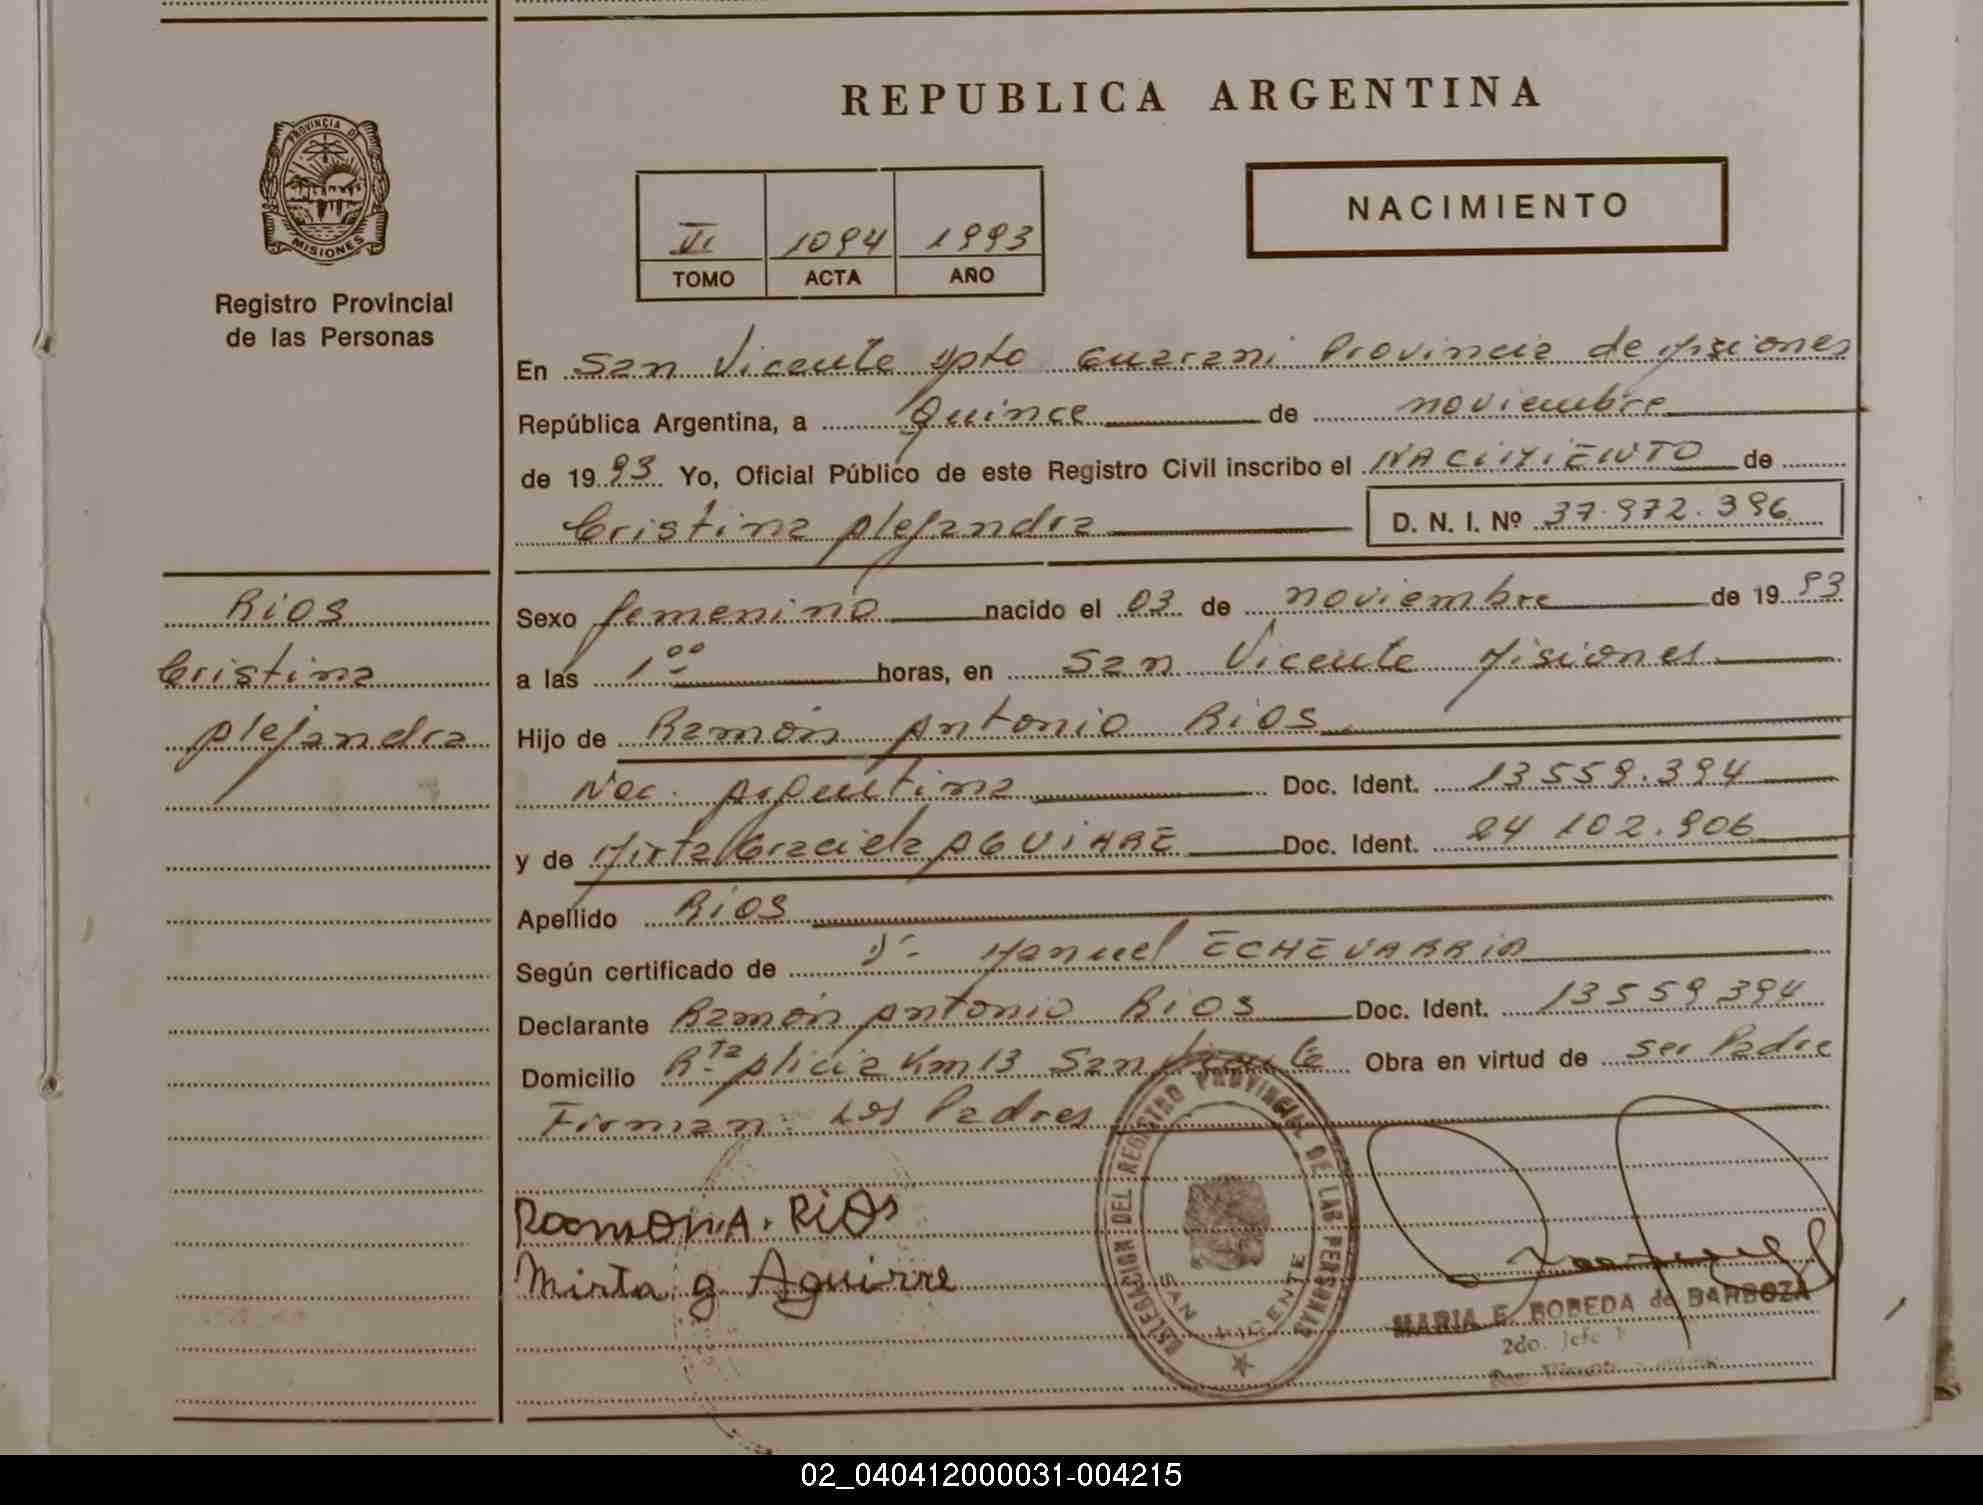 PROVINCIA DE
MISIONES
Registro Provincial
de las Personas
RIOS
Cristina
Alejandra
REPUBLICA ARGENTINA
VI 1094 1993
TOMO ACTA AÑO
NACIMIENTO
En San Vicente Dpto Guarani Provincia de Misiones
República Argentina, a Quince de noviembre
de 1993 Yo, Oficial Público de este Registro Civil inscribo el NACIMIENTO de
Cristina Alejandra D. N. I. Nº 37.972.396
Sexo femenino nacido el 03 de noviembre de 1993
a las 1⁰⁰ horas, en San Vicente Misiones
Hijo de Ramón Antonio RIOS
Nac. Argentina Doc. Ident. 13559.394
y de Mirta Graciela AGUIRRE Doc. Ident. 24 102.906
Apellido RIOS
Según certificado de Manuel ECHEVARRIA
Declarante Ramón Antonio RIOS Doc. Ident. 13559394
Domicilio R.ta Alicia Km 13 San Vicente Obra en virtud de ser Padre
Firman: Los Padres
Ramon A. Rios
Mirta g Aguirre
DELEGACION DEL REGISTRO PROVINCIAL DE LAS PERSONAS
SAN VICENTE
MARIA E. BOBEDA de BARBOZA
2do. Jefe
02_040412000031-004215